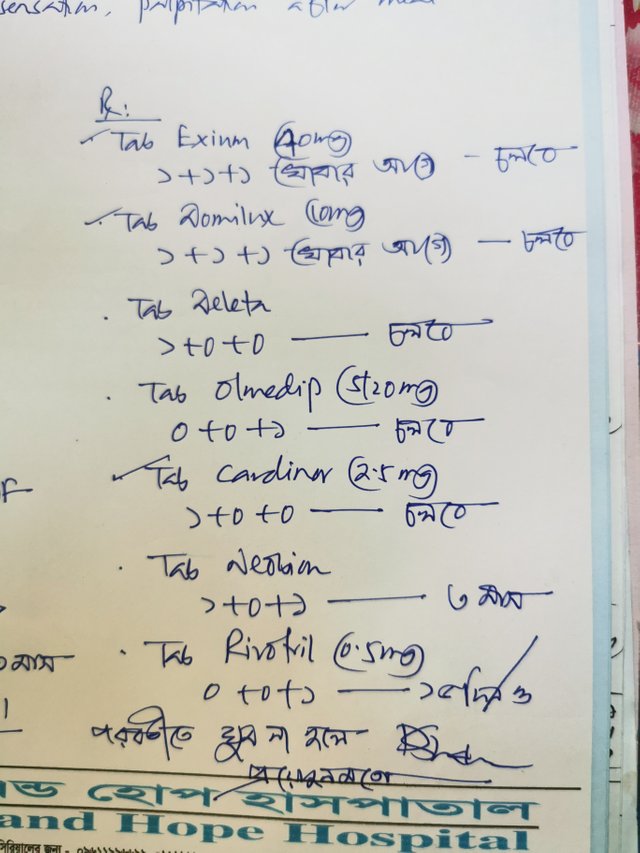 sensation, palpitation after meal
Rx:
Tab Exium (40mg)
১+১+১ (খাবার আগে) - চলবে
Tab Domilux (10mg)
১+১+১ (খাবার আগে) — চলবে
Tab Deleta
১+০+০ — চলবে
Tab Olmedip (5/20mg)
০+০+১ — চলবে
Tab Cardinor (2.5mg)
১+০+০ — চলবে
Tab Neobion
১+০+১ — ৩ মাস
মাস
Tab Rivotril (0.5mg)
০+০+১ — ১৫ দিন
পরবর্তীতে ঘুম না হলে
প্রয়োজনমতো
ন্ড হোপ হাসপাতাল
and Hope Hospital
সিরিয়ালের জন্য -